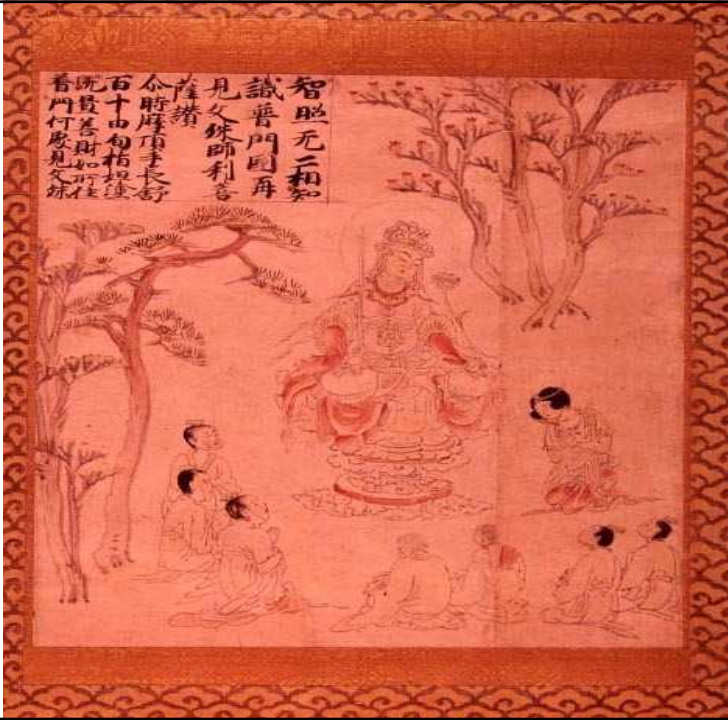 智照无二相知
識普門國再
見文殊師利菩
薩讃
尒時摩頂手長舒
百十由旬指坦塗
善財如所往
普門何處見文殊